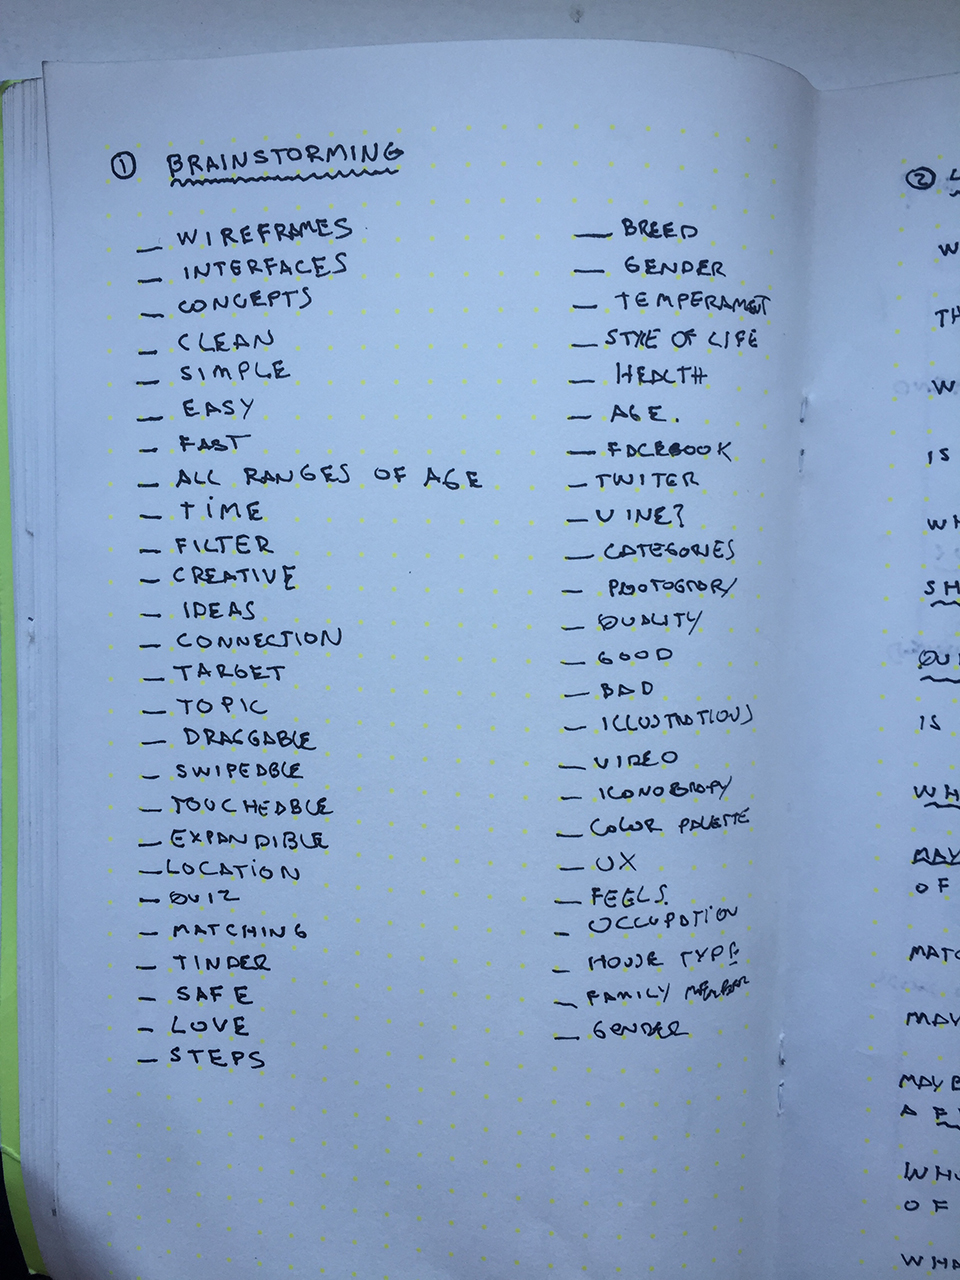 ① BRAINSTORMING
— WIREFRAMES
— INTERFACES
— CONCEPTS
— CLEAN
— SIMPLE
— EASY
— FAST
— ALL RANGES OF AGE
— TIME
— FILTER
— CREATIVE
— IDEAS
— CONNECTION
— TARGET
— TOPIC
— DRAGGABLE
— SWIPEABLE
— TOUCHEABLE
— EXPANDIBLE
— LOCATION
— QUIZ
— MATCHING
— TINDER
— SAFE
— LOVE
— STEPS
— BREED
— GENDER
— TEMPERAMET
— STYLE OF LIFE
— HEALTH
— AGE.
— FACEBOOK
— TWITER
— VINE?
— CATEGORIES
— PHOTOGRAPHY
— QUALITY
— GOOD
— BAD
— ILLUSTRATIONS
— VIDEO
— ICONOGRAPY
— COLOR PALETTE
— UX
— FEELS.
— OCCUPATION
— HOUSE TYPE
— FAMILY MEMBER
— GENDER
②
W
TH
W
IS
WH
SH
QU
IS
WH
MAY
OF
MATC
MAY
MAYB
A F
WH
OF
WHA